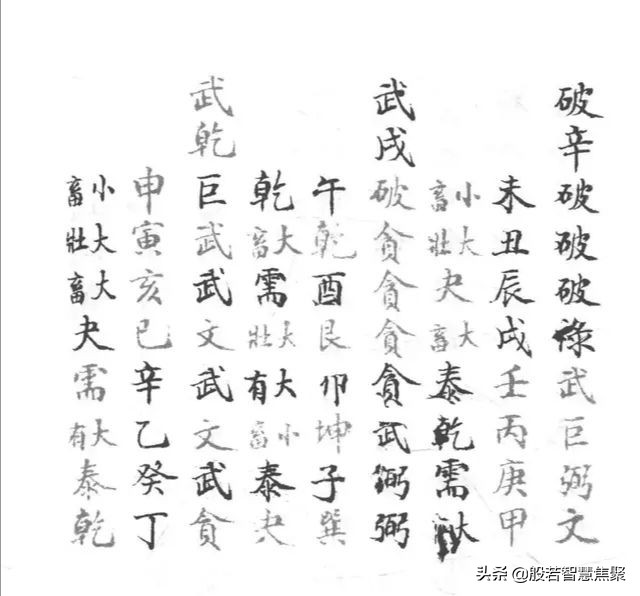 破辛破破破祿武巨弼文
未丑辰戌壬丙庚甲
小畜大壯夬大畜泰乾需大
武戌破貪貪貪貪武弼弼
午乾酉艮卯坤子巽
乾大畜需大壯大有小畜泰夬
武乾巨武武文武文武貪
申寅亥巳辛乙癸丁
小畜大壯大畜夬需大有泰乾
头条 @般若智慧焦聚